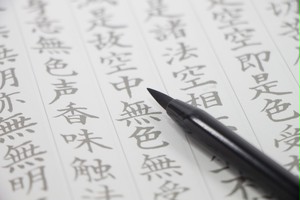 空即是色受
是諸法空相
是故空中無色無受
意無色声香味触法
明亦無無明